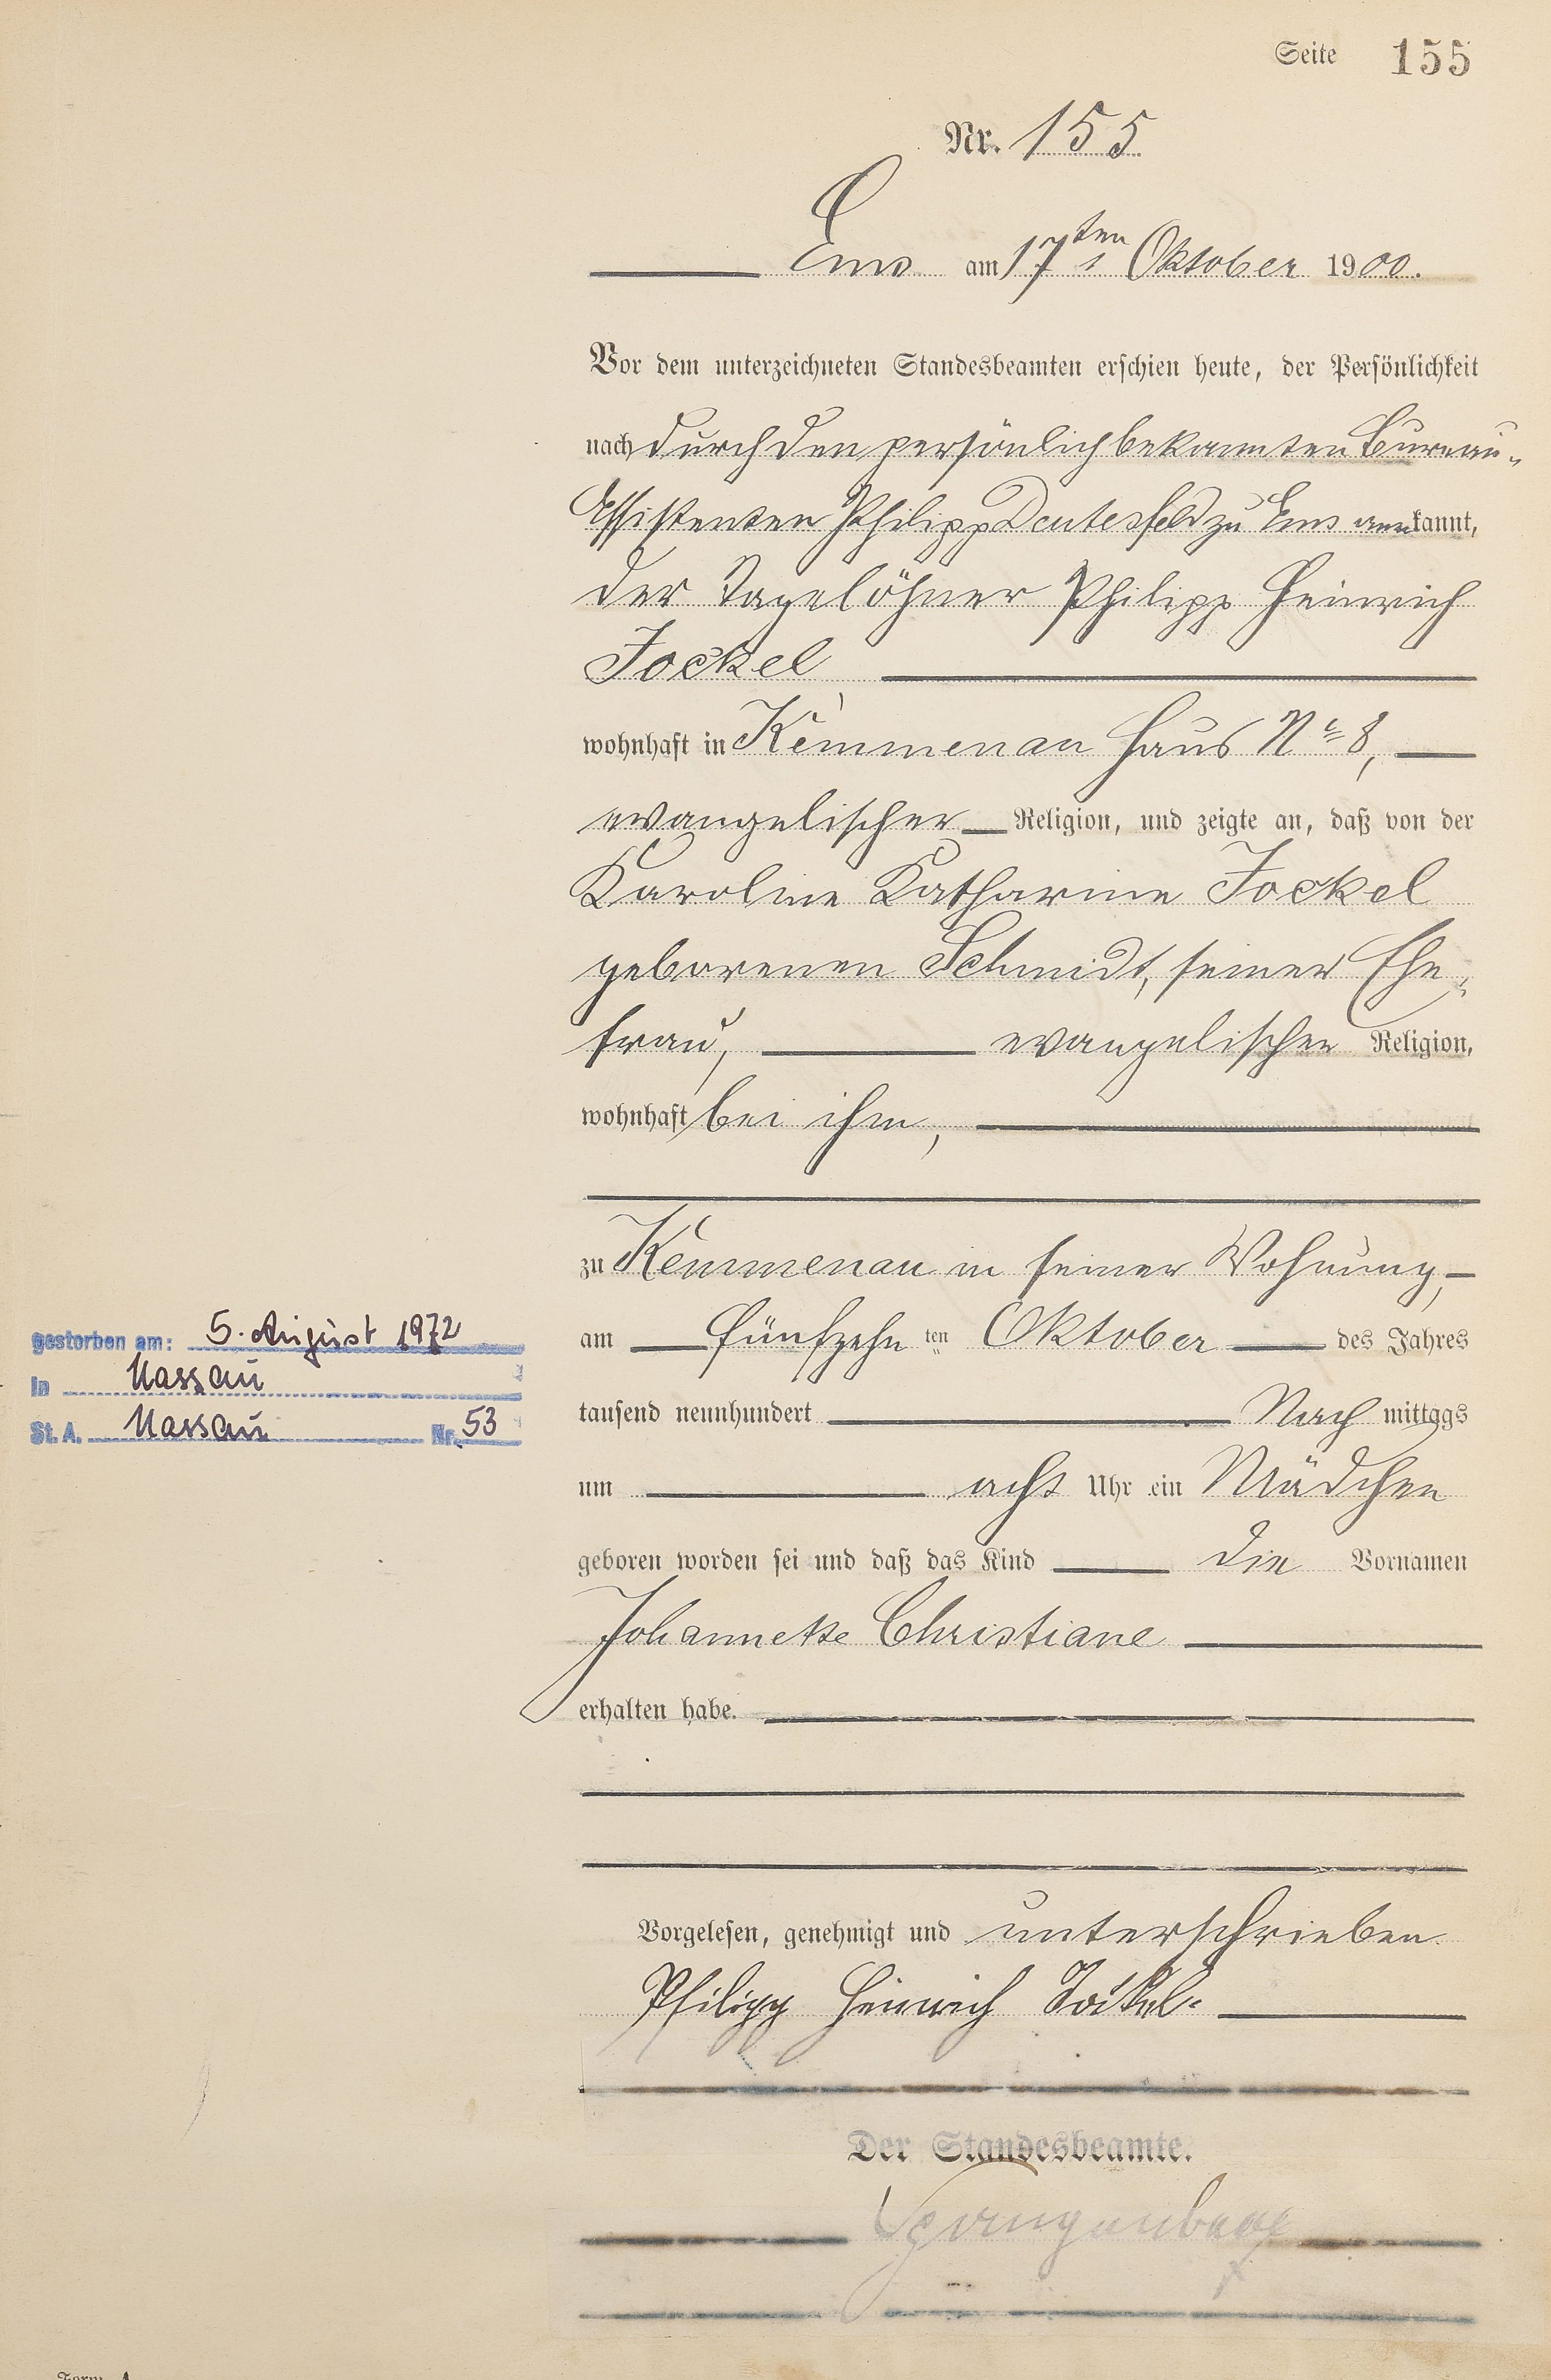 Seite 155
Nr. 155
Ems am 17ten Oktober 1900.
Vor dem unterzeichneten Standesbeamten erschien heute, der Persönlichkeit
nach durch den persönlich bekannten Bureau-
Assistenten Philipp Deutesfeld zu Ems anerkannt,
der Tagelöhner Philipp Heinrich
Jockel
wohnhaft in Kemmenau Haus No 8,
evangelischer Religion, und zeigte an, daß von der
Karoline Katharine Jockel
geborenen Schmidt, seiner Ehe-
frau, evangelischer Religion,
wohnhaft bei ihm,
zu Kemmenau in seiner Wohnung,
am fünfzehnten Oktober des Jahres
tausend neunhundert Nachmittags
um acht Uhr ein Mädchen
geboren worden sei und daß das Kind die Vornamen
Johannette Christiane
erhalten habe.
gestorben am: 5. August 1972
in Nassau
St. A. Nassau Nr. 53
Vorgelesen, genehmigt und unterschrieben
Philipp Heinrich Jockel.
Der Standesbeamte.
Form. A